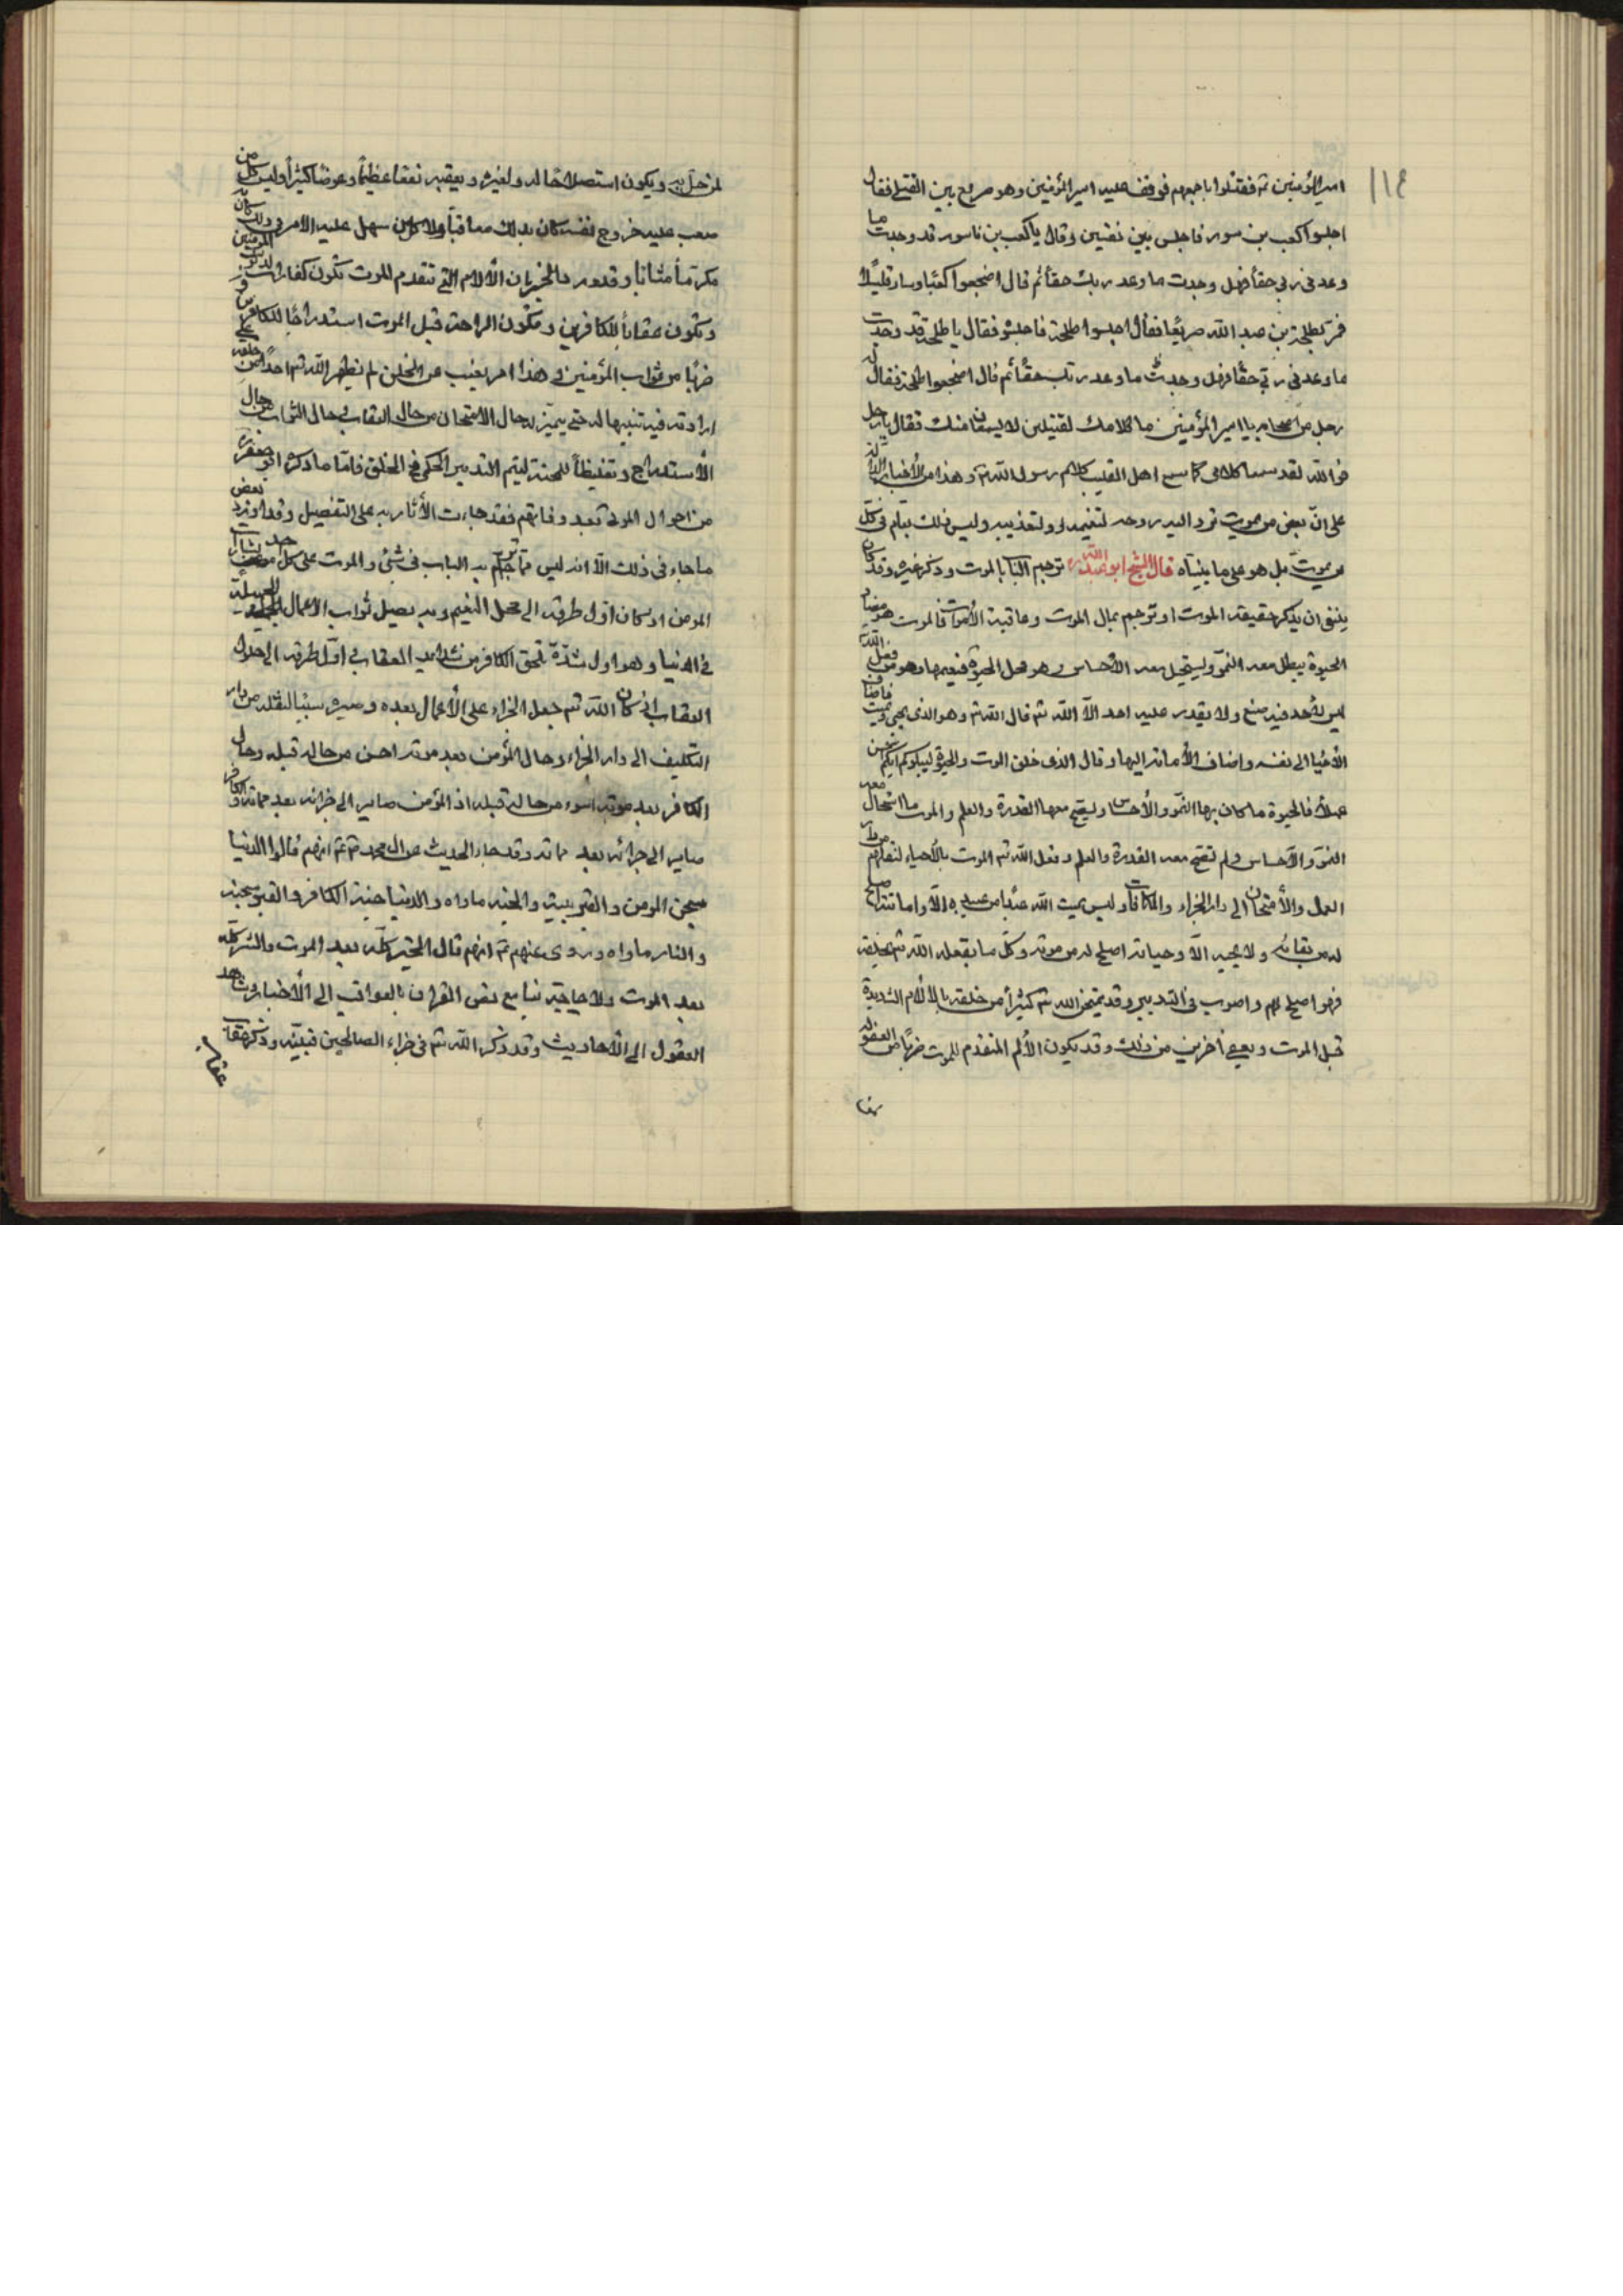 ١١٤
امير المؤمنين ثم فقتلوا باجمعهم فوقف عليه امير المؤمنين وهو صريع بين القتلى فقال
اجلسوا كعب بن سور فاجلس بين نفسين وقال يا كعب بن سور قد وجدت ما
وعدني ربي حقاً فهل وجدت ما وعد ربك حقاً ثم قال اضجعوا كعبًا وسار قليلًا
فمر بطلحة بن عبد الله صريعًا فقال اجلسوا طلحة فاجلسوه فقال يا طلحة قد وجدت
ما وعدني ربي حقًا فهل وجدت ما وعد ربك حقًا ثم قال اضجعوا طلحة فقال له
رجل من اصحابه يا امير المؤمنين ما كلامك لقتيلين لا يسمعان منك فقال يا رجل
فوالله لقد سمعا كلامي كما سمع اهل القليب كلام رسول الله ص وهذا من الأخبار الدالة
على انّ بعض من يموت ترد اليه روحه لتنعيمه او لتعذيبه وليس ذلك بعام في كل
من يموت بل هو على ما بيناه قال الشيخ ابو عبد الله ترجم الباب بالموت وذكر غيره وقد كان
ينبغي ان يذكر حقيقة الموت او يترجم بمال الموت وعاقبة الأموات فالموت هو مضاد
الحيوة يبطل معه النمو ويستحيل معه الاحساس وهو محل الحيوة فينفيها وهو من فعل الله
ليس لأحد فيه صنع ولا يقدر عليه احد الّا الله تع قال الله تع وهو الذي يحيي ويميت فاضاف
الأحيا الى نفسه واضاف الأماتة اليها وقال الذي خلق الموت والحيوة ليبلوكم ايكم احسن
عملًا فالحيوة ما كان بها النمو والأحساس ويصح معها القدرة والعلم والموت ما استحال معه
النمو والأحساس ولم تصح معه القدرة والعلم وفعل الله تع الموت بالأحياء لنقلهم من دار
العمل والأمتحان الى دار الجزاء والمكافات وليس يميت الله عبدًا من عبيده الّا واماتته اصلح
له من بقائه ولا يحييه الّا وحياته اصلح له من موته وكل ما يفعله الله تع بخلقه
فهو اصلح لهم واصوب في التدبير وقد يمتحن الله تع كثيرًا من خلقه بالالآم الشديدة
قبل الموت ويعفي آخرين من ذلك وقد يكون الألم المتقدم للموت ضربًا من العقوبة
لمن حل به ويكون استصلاحًا له ولغيره ويعقبه نفعًا عظيمًا وعوضًا كثيرًا وليس كل من
صعب عليه خروج نفسه كان بذلك معاقبًا ولا كل من سهل عليه الامر في ذلك كان به
مكرمًا مثابًا وقد ورد الخبر بان الآلام التي تتقدم الموت تكون كفارات لذنوب المؤمنين
وتكون عقابًا للكافرين وتكون الراحة قبل الموت استدراجًا للكافرين و
ضربًا من ثواب المؤمنين وهذا امر يغيب عن الخلق لم يظهر الله تع احدًا من خلقه على
ارادته فيه تنبيها له حتى يميز له حال الامتحان من حال العقاب وحال الثواب من حال
الأستدراج وتغليظًا للمحنة ليتم التدبير الحكمي في الخلق فامّا ما ذكره ابو جعفر
من احوال الموتى بعد وفاتهم فقد جاءت الأثار به على التفصيل وقد اورد بعض
ما جاء في ذلك الّا انه ليس مما ترجم به الباب في شئ والموت على كل حال احد بشارات
المومن اذ كان اول طرقه الى محل النعيم وبه يصل ثواب الاعمال الجميلة
في الدنيا وهو اول شدّة تلحق الكافر من شدايد العقاب واول طرقه الى حلول
العقاب اذ كان الله تع جعل الجزاء على الأعمال بعده وصيره سببًا لنقله من دار
التكليف الى دار الجزاء وحال المؤمن بعد موته احسن من حاله قبله وحال
الكافر بعد موته اسوء من حاله قبله اذ المؤمن صاير الى جزائه بعد مماته والكافر
صاير الى جزائه بعد مماته وقد جاء الحديث عن ال محمد ع انهم قالوا الدنيا
سجن المومن والقبر بيته والجنة ماواه والدنيا جنة الكافر والقبر سجنه
والنار ماواه وروى عنهم ع انهم قال الخير كله بعد الموت والشر كله
بعد الموت ولا حاجة بنا مع نص القران بالعواقب الى الأخبار وشاهد
العقول الى الأحاديث وقد ذكر الله تع في جزاء الصالحين فبينه وذكر عقاب